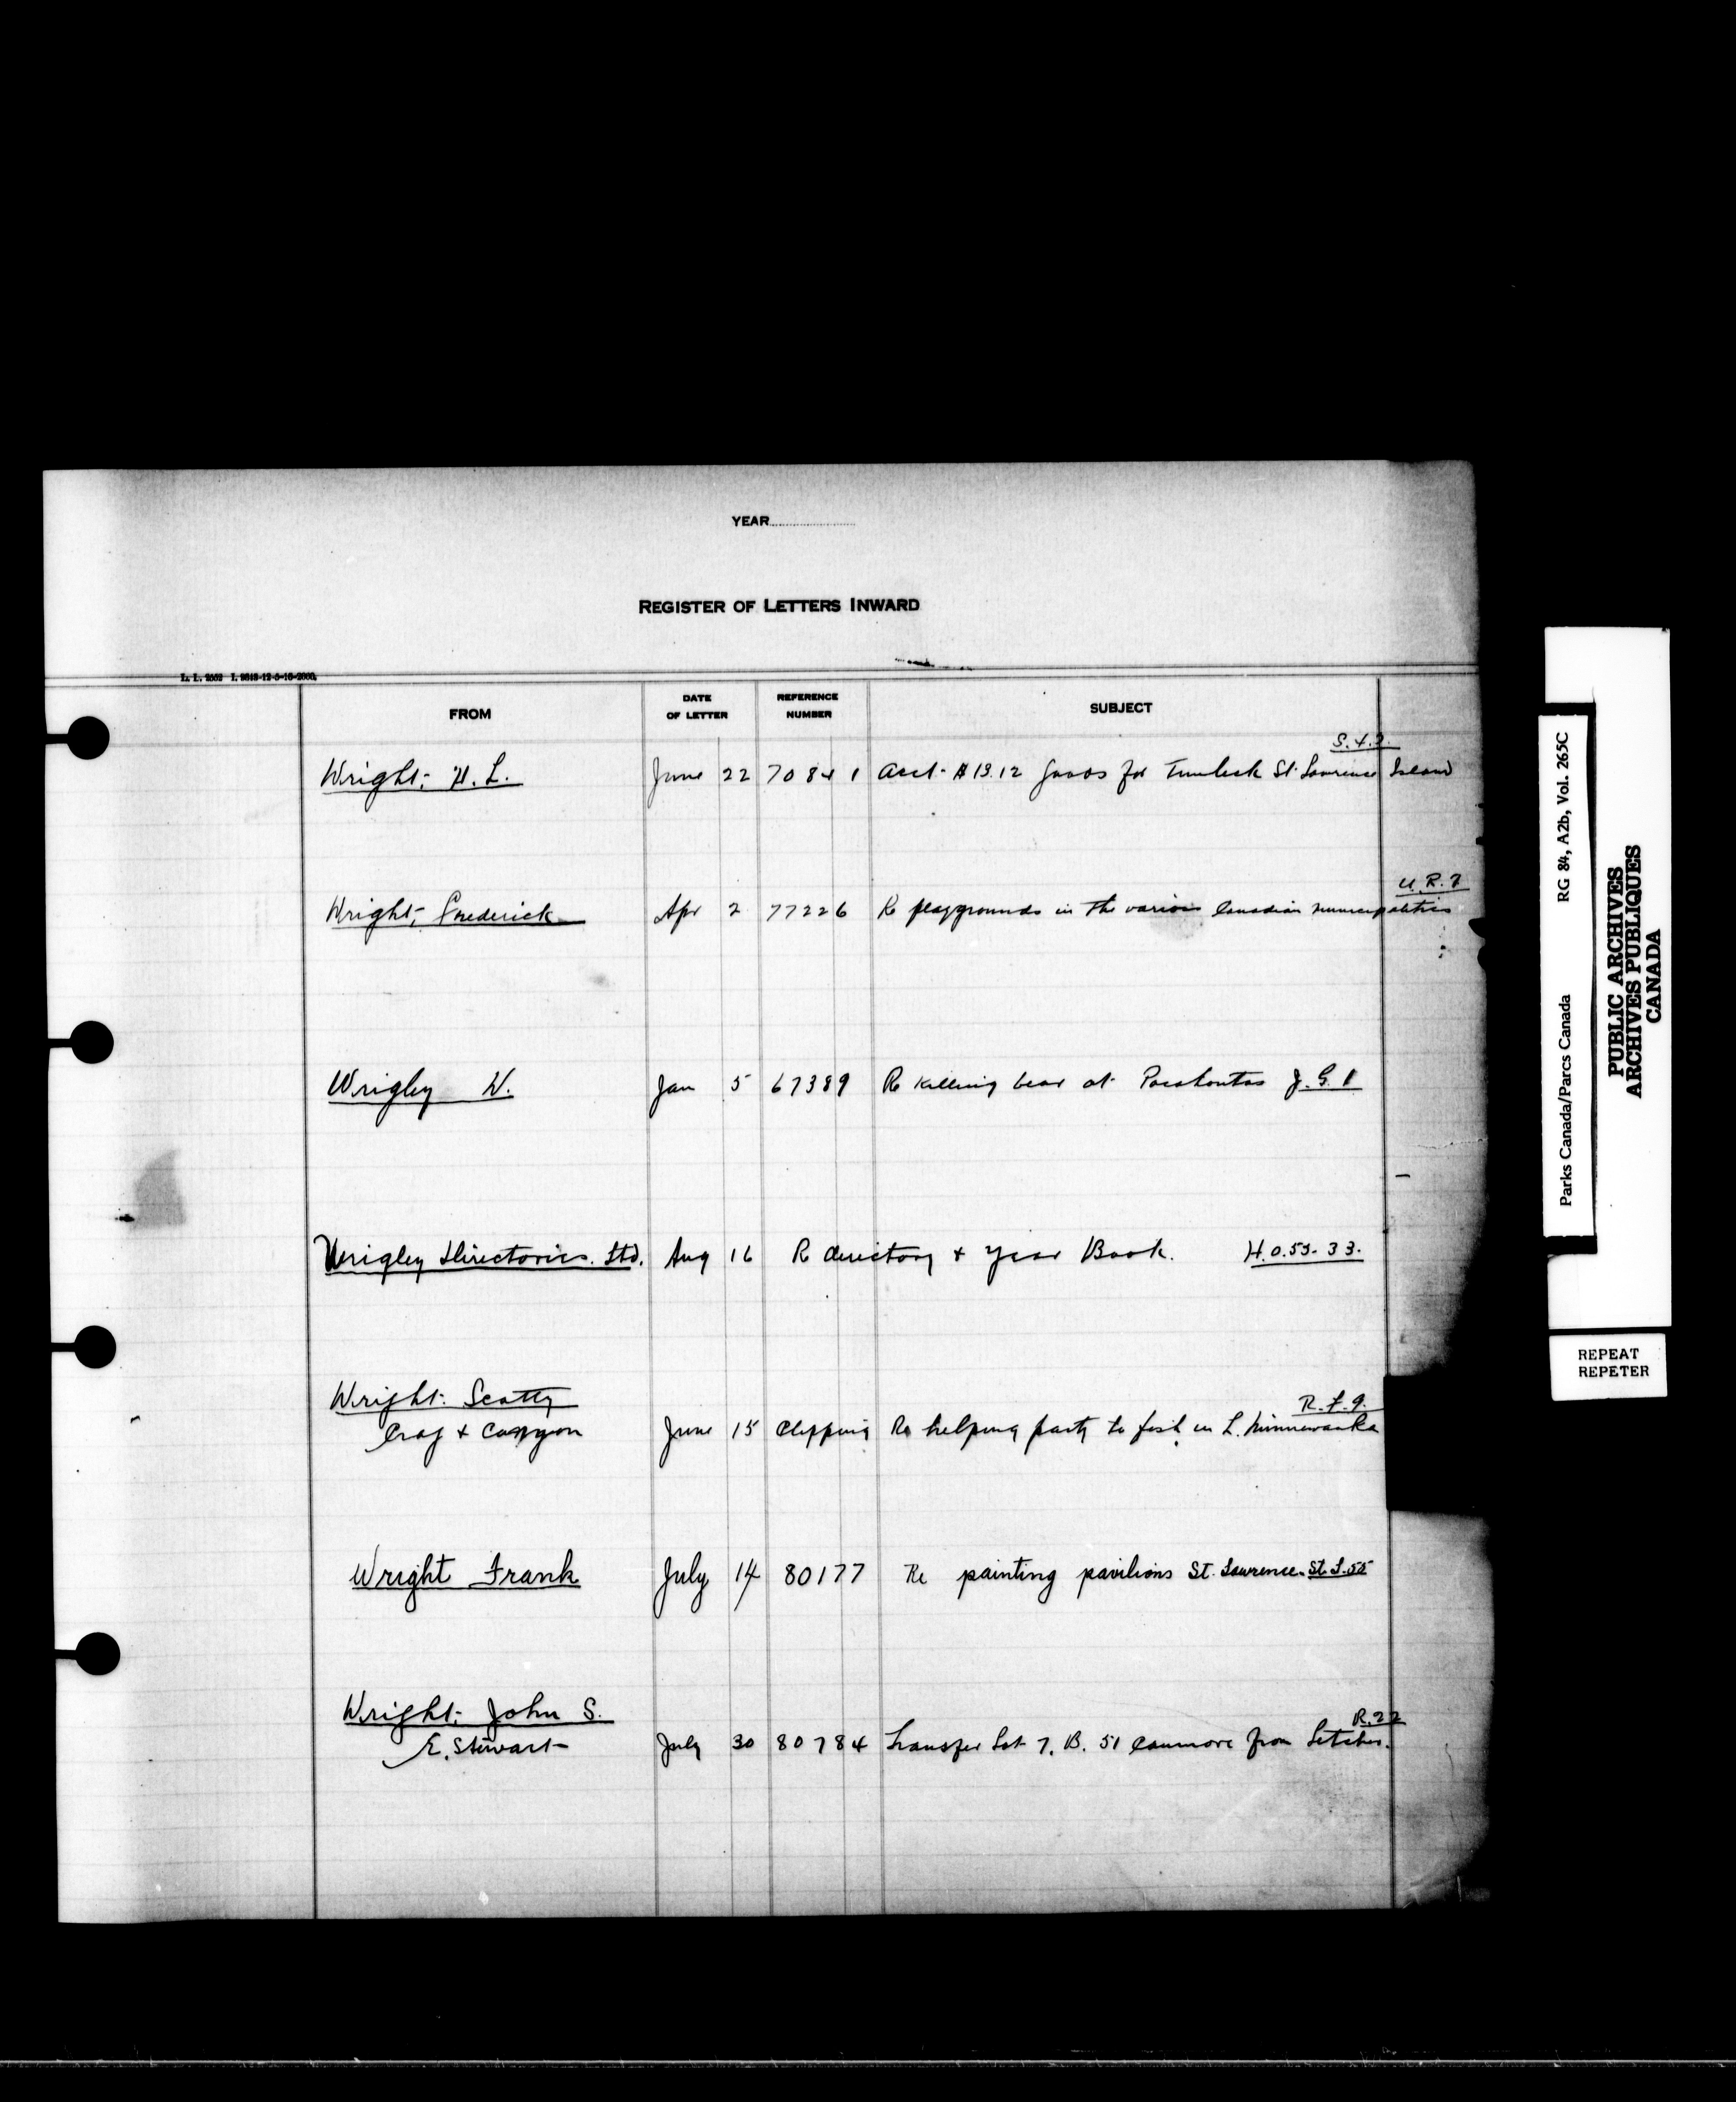 YEAR
REGISTER OF LETTERS INWARD
FROM DATE OF LETTER REFERENCE NUMBER SUBJECT
Wright, H. L. June 22 70841 Acct. $13.12 goods for St. Lawrence Island
U.R.2
Wright, Frederick Apr 2 77226 Re playgrounds in the various Canadian municipalities
Wrigley W. Jan 5 67389 Re killing bear at Pocahontas J.G.1
Wrigley Directories. Ltd. Aug 16 Re directory + Year Book. H.O.55-33.
R.L.9.
Wright. Scotty
Crag + Canyon June 15 Clipping Re helping party to fish in L. Minnewanka
Wright Frank July 14 80177 Re painting pavilions St. Lawrence. St.L.55
R.22
Wright, John S.
E. Stewart July 30 80784 Transfer Lot 7. B. 51 Canmore from
RG 84, A2b, Vol. 265C
Parks Canada/Parcs Canada
PUBLIC ARCHIVES
ARCHIVES PUBLIQUES
CANADA
REPEAT
REPETER